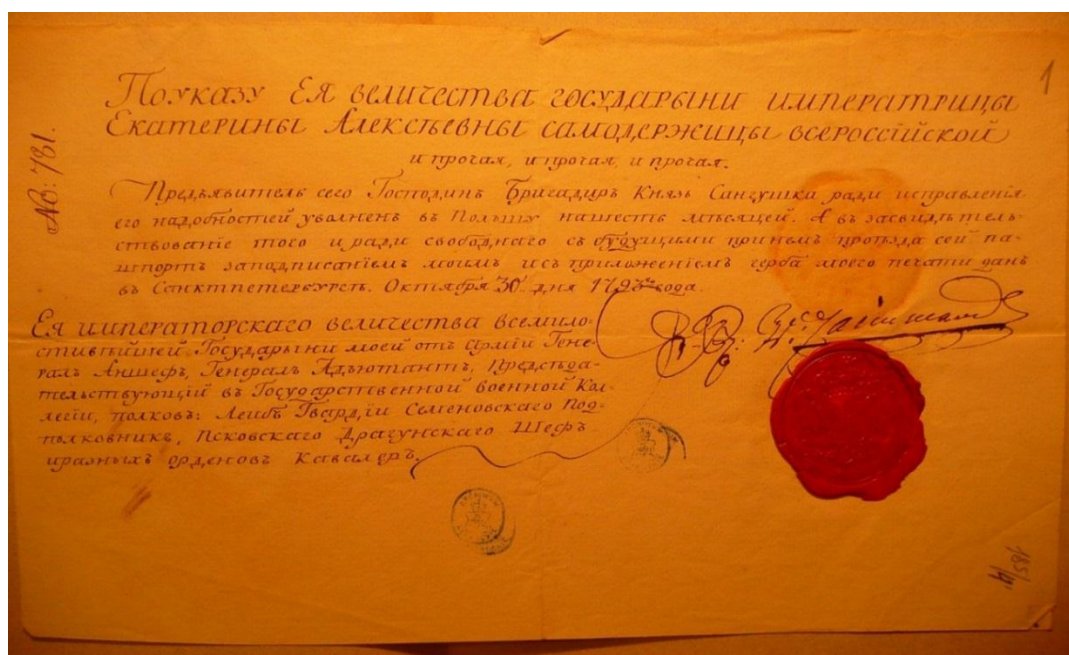 1
No: 781.
По указу Ея величества государыни императрицы
Екатерины Алексѣевны самодержицы всероссїйской
и прочая, и прочая, и прочая.
Предъявитель сего Господинъ Бригадиръ Князь Сангушка ради исправленїя
его надобностей уволненъ въ Польшу нашесть мѣсяцей. А въ засвидѣтель-
ствованїе того и ради свободнаго съ будущими принемъ проѣзда сей па-
шпортъ заподписанїемъ моимъ исъ приложенїемъ герба моего печати данъ
въ Санктпетербургѣ. Октября 30 дня 1793 года.
Ея императорскаго величества всемило-
стивѣйшей Государыни моей отъ Армїи Гене-
ралъ Аншефъ, Генералъ Адъютантъ, Предсѣда-
тельствующїй въ Государственной военной Кол-
легїи, полковъ: Лейбъ Гвардїи Семеновскаго Под-
полковникъ, Псковскаго Драгунскаго Шефъ
иразныхъ орденовъ Кавалеръ.
185/4